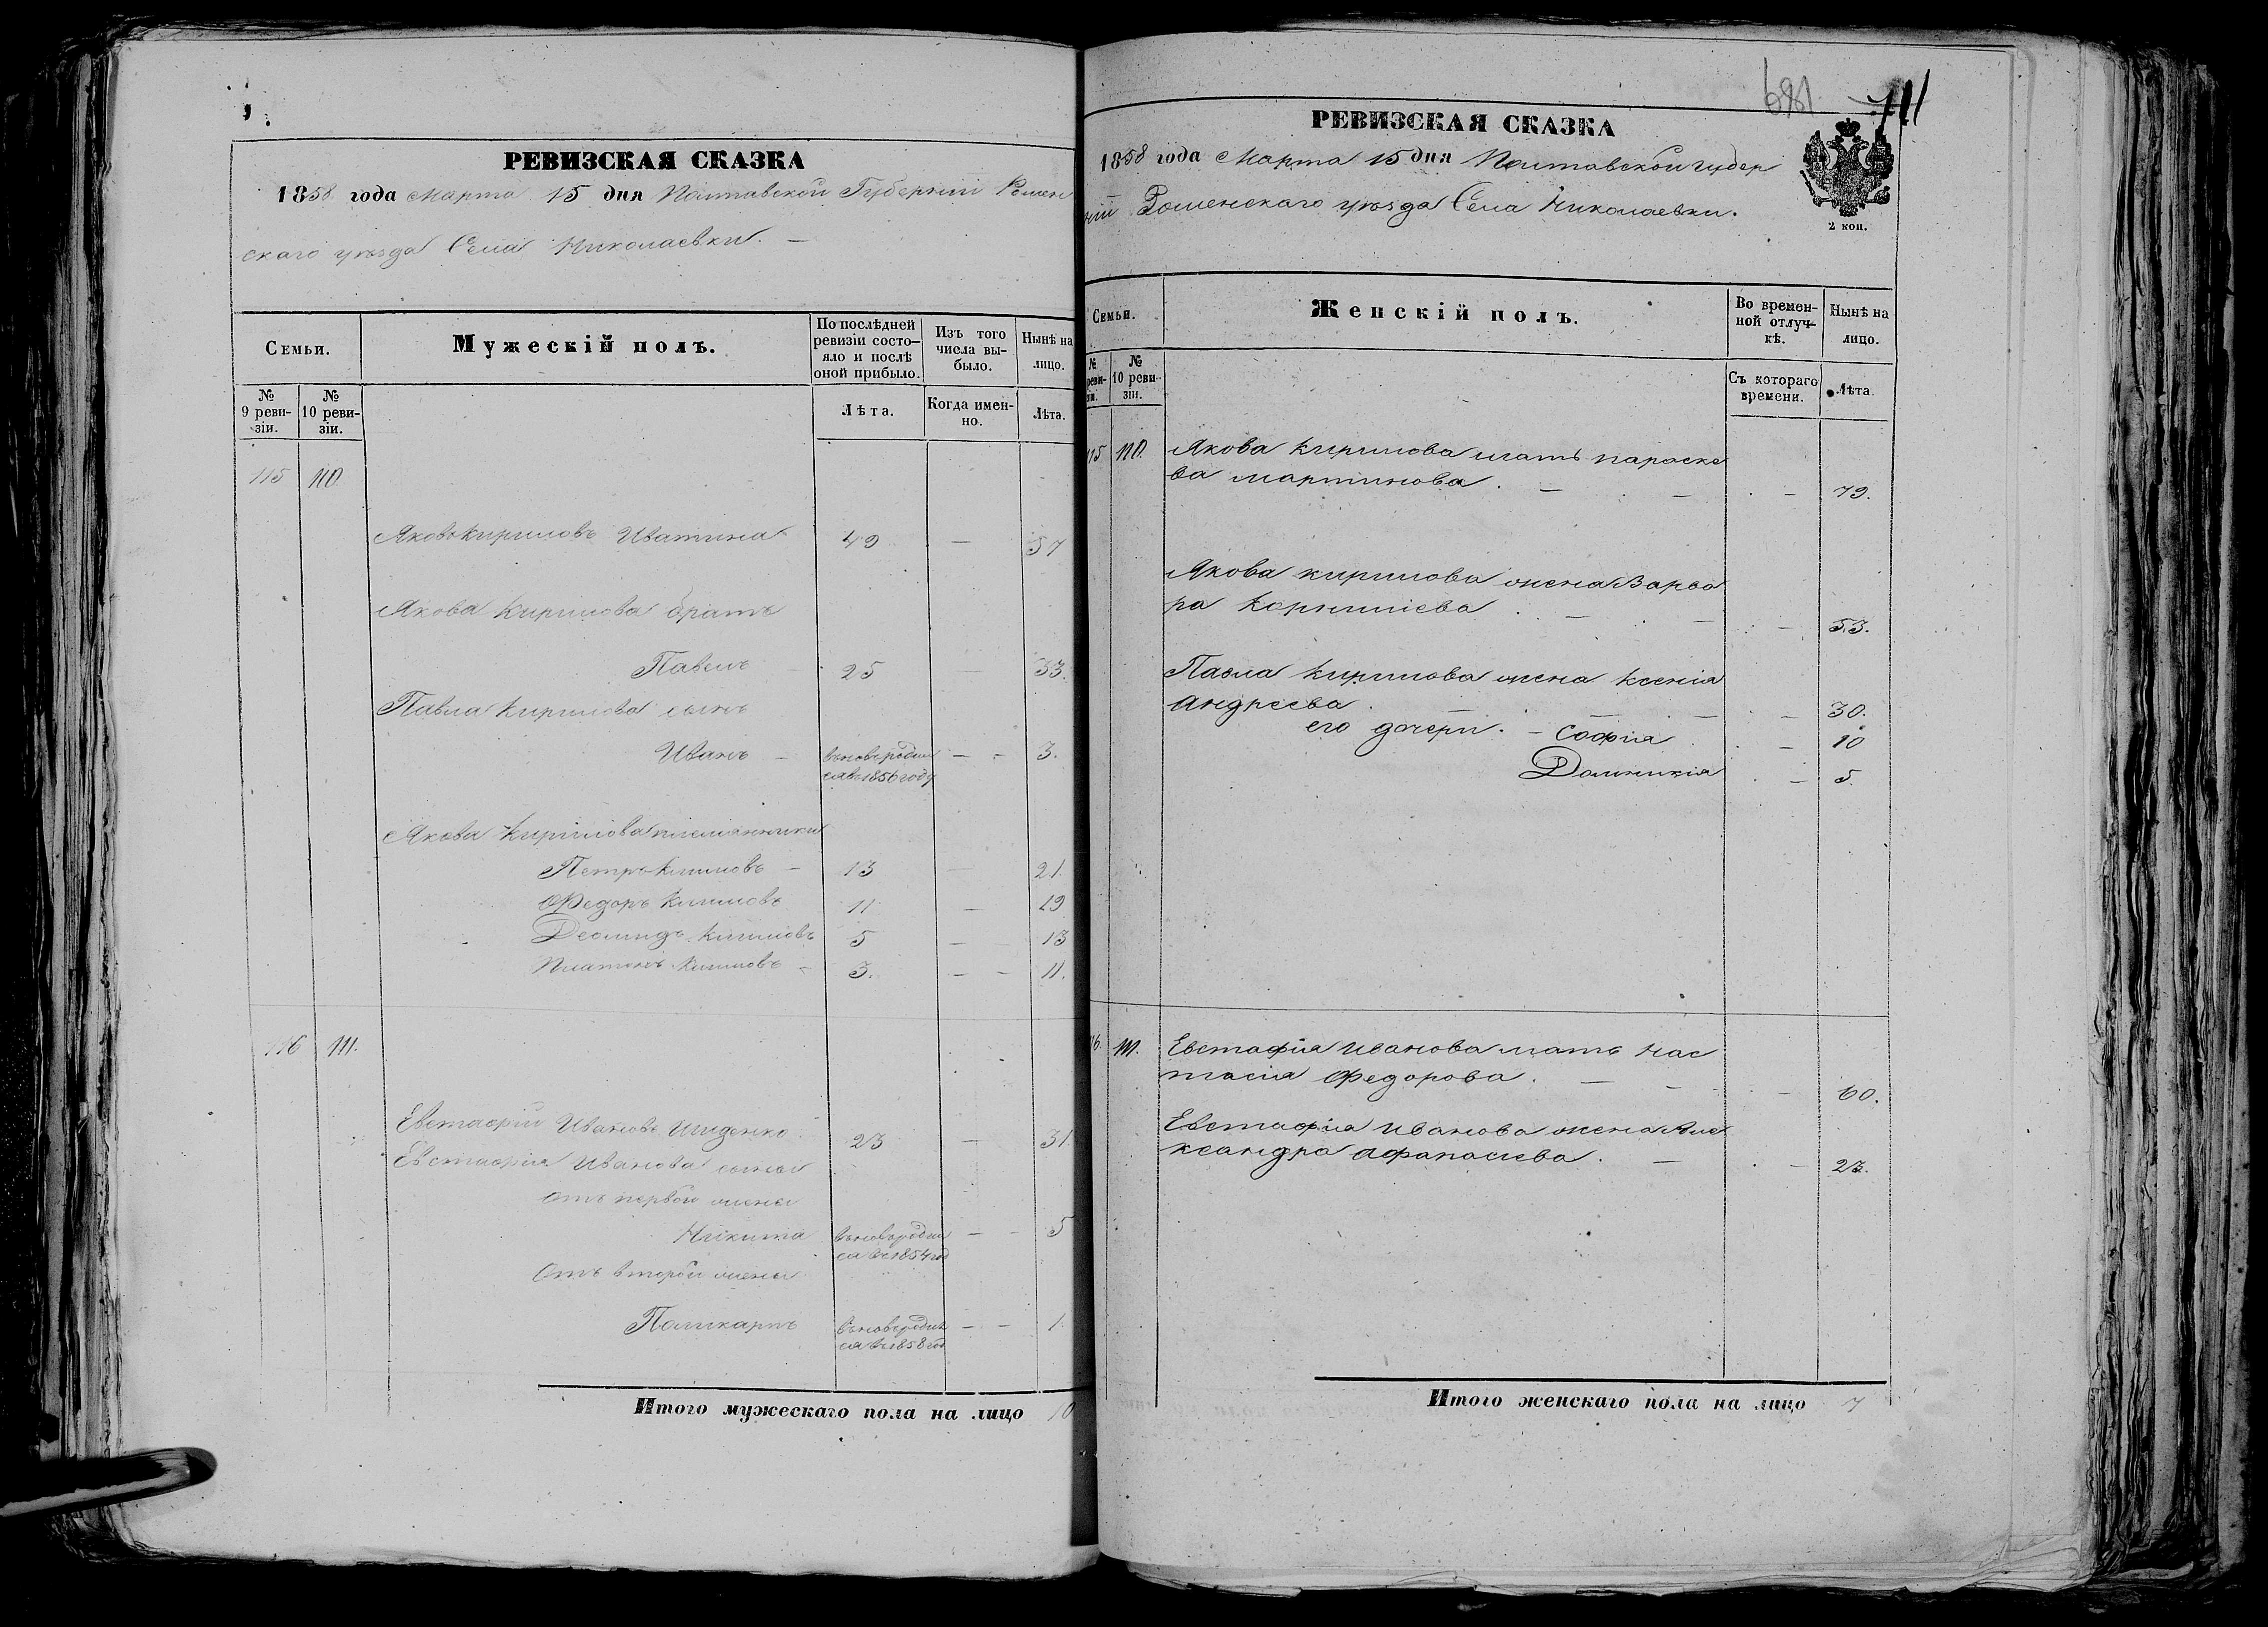 РЕВИЗСКАЯ СКАЗКА
1858 года Марта 15 дня Полтавской Губерніи Ромен
скаго уѣзда Села Николаевки. —
Семьи.
Мужескій полъ.
По послѣдней ревизіи состо-
яло и послѣ оной прибыло.
Изъ того числа вы-
было.
Нынѣ на лицо.
№ 9 реви-
зіи.
№ 10 реви-
зіи.
Лѣта.
Когда имен-
но.
Лѣта.
115 110
Яковъ Кириловъ 49 — 57
Якова Кирилова братъ
Павелъ 25 — 33.
Павла Кирилова сынъ
Иванъ — вновь родил — - 3.
ся въ 1856 году
Якова Кирилова племянники
Петръ Климовъ — 13 — 21.
Федоръ Климовъ 11 — 19
Климовъ 5 — 13
Платонъ Климовъ - 3. — - 11.
116 111.
Евстафій Ивановъ 23 — 31
Евстафія Иванова сыны
отъ первой жены
Никита вновь родил — - 5
ся въ 1854 год
Отъ второй жены
Поликарпъ вновь родил — - 1.
ся въ 1858 год
Итого мужескаго пола на лицо 10
681 711
РЕВИЗСКАЯ СКАЗКА
1858 года Марта 15 дня Полтавской губер
ніи Роменскаго уѣзда Села Николаевки.
2 коп.
Семьи.
Женскій полъ.
Во времен-
ной отлуч-
кѣ.
Нынѣ на лицо.
№ реви-
зіи.
№ 10 реви-
зіи.
Съ котораго времени.
Лѣта.
115 110. Якова Кирилова мать параске
ва мартинова . — . — . — 79.
Якова кирилова жена Варва
ра Корнилiева . — . — . — 53.
Павла Кирилова жена Ксенія
Андреева . — . — — . — 30.
его дочери. — Софія . . — 10
Домникія . — 5.
116. 111. Евстафія Иванова мать Нас
тасія Федорова . — - — 60.
Евстафія Иванова жена Але
ксандра Афанасиева . — . — 23.
Итого женскаго пола на лицо 7